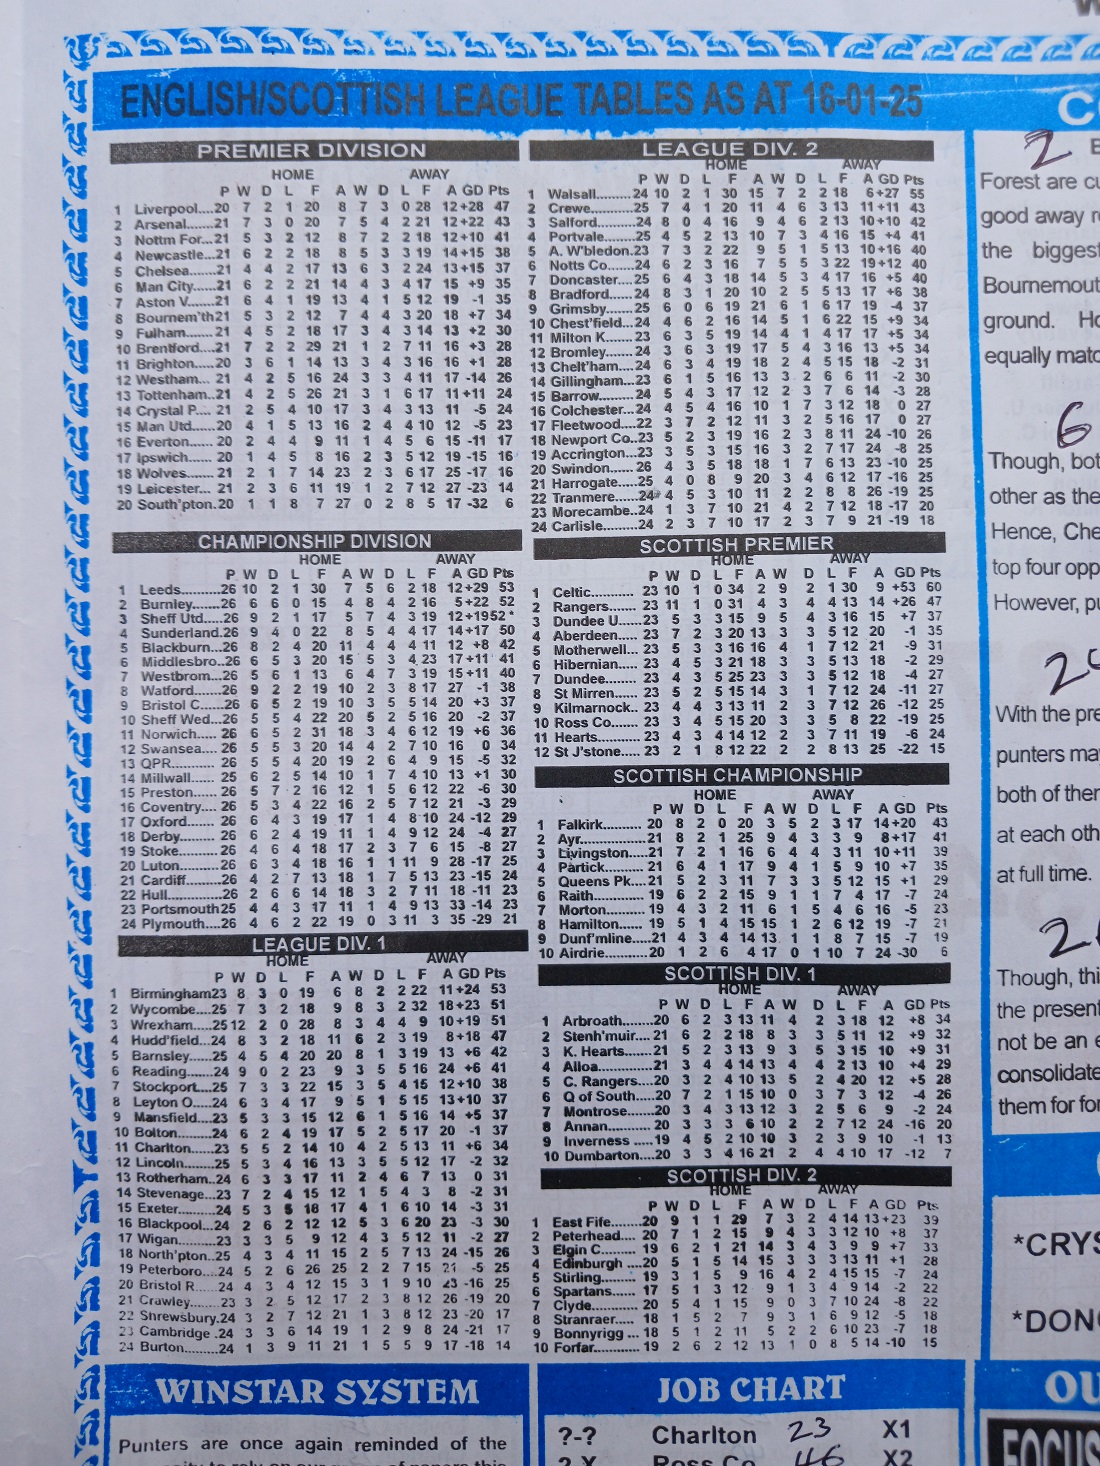 ENGLISH/SCOTTISH LEAGUE TABLES AS AT 16-01-25
PREMIER DIVISION
HOME AWAY
P W D L F A W D L F A GD Pts
1 Liverpool....20 7 2 1 20 8 7 3 0 28 12+28 47
2 Arsenal......21 7 3 0 20 7 5 4 2 21 12+22 43
3 Nottm For...21 5 3 2 12 8 7 2 2 18 12+10 41
4 Newcastle...21 6 2 2 18 8 5 3 3 19 14+15 38
5 Chelsea......21 4 4 2 17 13 6 3 2 24 13+15 37
6 Man City.....21 6 2 2 21 14 4 3 4 17 15 +9 35
7 Aston V......21 6 4 1 19 13 4 1 5 12 19 -1 35
8 Bournem'th21 5 3 2 12 7 4 4 3 20 18 +7 34
9 Fulham......21 4 5 2 18 17 3 4 3 14 13 +2 30
10 Brentford...21 7 2 2 29 21 1 2 7 11 16 +3 28
11 Brighton....20 3 6 1 14 13 3 4 3 16 16 +1 28
12 Westham...21 4 2 5 16 24 3 3 4 11 17 -14 26
13 Tottenham..21 4 2 5 26 21 3 1 6 17 11+11 24
14 Crystal P....21 2 5 4 10 17 3 4 3 13 11 -5 24
15 Man Utd.....20 4 1 5 13 16 2 4 4 10 12 -5 23
16 Everton......20 2 4 4 9 11 1 4 5 6 15 -11 17
17 Ipswich.....20 1 4 5 8 16 2 3 5 12 19 -15 16
18 Wolves......21 2 1 7 14 23 2 3 6 17 25 -17 16
19 Leicester...21 2 3 6 11 19 1 2 7 12 27 -23 14
20 South'pton.20 1 1 8 7 27 0 2 8 5 17 -32 6
CHAMPIONSHIP DIVISION
HOME AWAY
P W D L F A W D L F A GD Pts
1 Leeds.........26 10 2 1 30 7 5 6 2 18 12+29 53
2 Burnley.......26 6 6 0 15 4 8 4 2 16 5+22 52
3 Sheff Utd....26 9 2 1 17 5 7 4 3 19 12+19 52 *
4 Sunderland.26 9 4 0 22 8 5 4 4 17 14+17 50
5 Blackburn...26 8 2 4 20 11 4 4 4 11 12 +8 42
6 Middlesbro..26 6 5 3 20 15 5 3 4 23 17+11 41
7 Westbrom...26 5 6 1 13 6 4 7 3 19 15+11 40
8 Watford......26 9 2 2 19 10 2 3 8 17 27 -1 38
9 Bristol C.....26 6 5 2 19 10 3 5 5 14 20 +3 37
10 Sheff Wed...26 5 5 4 22 20 5 2 5 16 20 -2 37
11 Norwich.....26 6 5 2 31 18 3 4 6 12 19 +6 36
12 Swansea....26 5 5 3 20 14 4 2 7 10 16 0 34
13 QPR..........26 5 5 4 20 19 2 6 4 9 15 -5 32
14 Millwall......25 6 2 5 14 10 1 7 4 10 13 +1 30
15 Preston......26 5 7 2 16 12 1 5 6 12 22 -6 30
16 Coventry....26 5 3 4 22 16 2 5 7 12 21 -3 29
17 Oxford.......26 6 4 3 19 17 1 4 8 10 24 -12 29
18 Derby........26 6 2 4 19 11 1 4 9 12 24 -4 27
19 Stoke........26 4 6 4 18 17 2 3 7 6 15 -8 27
20 Luton........26 6 3 4 18 16 1 1 11 9 28 -17 25
21 Cardiff.......26 4 2 7 13 18 1 7 5 13 23 -15 24
22 Hull...........26 2 6 6 14 18 3 2 7 11 18 -11 23
23 Portsmouth25 4 4 3 17 11 1 4 9 13 33 -14 23
24 Plymouth...26 4 6 2 22 19 0 3 11 3 35 -29 21
LEAGUE DIV. 1
HOME AWAY
P W D L F A W D L F A GD Pts
1 Birmingham23 8 3 0 19 6 8 2 2 22 11+24 53
2 Wycombe...25 7 3 2 18 9 8 3 2 32 18+23 51
3 Wrexham....25 12 2 0 28 8 3 4 4 9 10+19 51
4 Hudd'field...24 8 3 2 18 11 6 2 3 19 8+18 47
5 Barnsley.....25 4 5 4 20 20 8 1 3 19 13 +6 42
6 Reading......24 9 0 2 23 9 3 5 5 16 24 +6 41
7 Stockport...25 7 3 3 22 15 3 5 4 15 12+10 38
8 Leyton O....24 6 3 4 17 9 5 1 5 15 13+10 37
9 Mansfield....23 5 3 3 15 12 6 1 5 16 14 +5 37
10 Bolton.......24 6 2 4 19 17 5 2 5 17 20 -1 37
11 Charlton....23 5 5 2 14 10 4 2 5 13 11 +6 34
12 Lincoln......25 5 3 4 16 13 3 5 5 12 17 -2 32
13 Rotherham..24 6 3 3 17 11 2 4 6 7 13 0 31
14 Stevenage...23 7 2 4 15 12 1 5 4 3 8 -2 31
15 Exeter.......24 5 3 5 18 17 4 1 6 10 14 -3 31
16 Blackpool...24 2 6 2 12 12 5 3 6 20 23 -3 30
17 Wigan.......23 3 3 5 9 12 4 3 5 12 11 -2 27
18 North'pton..25 4 3 4 11 15 2 5 7 13 24 -15 26
19 Peterboro....24 5 2 6 26 25 2 2 7 15 21 -5 25
20 Bristol R.....24 4 3 4 12 15 3 1 9 10 23 -16 25
21 Crawley.....23 3 2 5 12 17 2 3 8 12 26 -19 20
22 Shrewsbury.24 3 2 7 12 21 1 3 8 12 23 -20 17
23 Cambridge .24 3 3 6 14 19 1 2 9 8 24 -21 17
24 Burton.......24 1 3 9 11 21 1 5 5 9 17 -18 14
LEAGUE DIV. 2
HOME AWAY
P W D L F A W D L F A GD Pts
1 Walsall.......24 10 2 1 30 15 7 2 2 18 6+27 55
2 Crewe........25 7 4 1 20 11 4 6 3 13 11+11 43
3 Salford.......24 8 0 4 16 9 4 6 2 13 10+10 42
4 Portvale.....25 4 5 2 13 10 7 3 4 16 15 +4 41
5 A. W'bledon.23 7 3 2 22 9 5 1 5 13 10+16 40
6 Notts Co.....24 6 2 3 16 7 5 5 3 22 19+12 40
7 Doncaster...25 6 4 3 18 14 5 3 4 17 16 +5 40
8 Bradford.....24 8 3 1 20 10 2 5 5 13 17 +6 38
9 Grimsby.....25 6 0 6 19 21 6 1 6 17 19 -4 37
10 Chest'field...24 4 6 2 16 14 5 1 6 22 15 +9 34
11 Milton K.....23 6 3 5 19 14 4 1 4 17 17 +5 34
12 Bromley.....24 3 6 3 19 17 5 4 3 16 13 +5 34
13 Chelt'ham...24 6 3 4 19 18 2 4 5 15 18 -2 31
14 Gillingham...23 6 1 5 16 13 3 2 6 6 11 -2 30
15 Barrow.......24 5 4 3 17 12 2 3 7 6 14 -3 28
16 Colchester...24 4 5 4 16 10 1 7 3 12 18 0 27
17 Fleetwood...22 3 7 2 12 11 3 2 5 16 17 0 27
18 Newport Co..23 5 2 3 19 16 2 3 8 11 24 -10 26
19 Accrington...23 3 5 3 15 16 3 2 7 17 24 -8 25
20 Swindon.....26 4 3 5 18 18 1 7 6 13 23 -10 25
21 Harrogate....25 4 0 8 9 20 3 4 6 12 17 -16 25
22 Tranmere.....24 4 5 3 10 11 2 2 8 8 26 -19 25
23 Morecambe..24 1 3 7 10 21 4 2 7 12 18 -17 20
24 Carlisle.......24 2 3 7 10 17 2 3 7 9 21 -19 18
SCOTTISH PREMIER
HOME AWAY
P W D L F A W D L F A GD Pts
1 Celtic.........23 10 1 0 34 2 9 2 1 30 9 +53 60
2 Rangers......23 11 1 0 31 4 3 4 4 13 14 +26 47
3 Dundee U....23 5 3 3 15 9 5 4 3 16 15 +7 37
4 Aberdeen....23 7 2 3 20 13 3 3 5 12 20 -1 35
5 Motherwell...23 5 3 3 16 16 4 1 7 12 21 -9 31
6 Hibernian....23 4 5 3 21 18 3 3 5 13 18 -2 29
7 Dundee.......23 4 3 5 25 23 3 3 5 12 18 -4 27
8 St Mirren.....23 5 2 5 15 14 3 1 7 12 24 -11 27
9 Kilmarnock..23 4 4 3 13 11 2 3 7 12 26 -12 25
10 Ross Co......23 3 4 5 15 20 3 3 5 8 22 -19 25
11 Hearts........23 4 3 4 14 12 2 3 7 11 19 -6 24
12 St J'stone....23 2 1 8 12 22 2 2 8 13 25 -22 15
SCOTTISH CHAMPIONSHIP
HOME AWAY
P W D L F A W D L F A GD Pts
1 Falkirk..........20 8 2 0 20 3 5 2 3 17 14+20 43
2 Ayr..............21 8 2 1 25 9 4 3 3 9 8+17 41
3 Livingston....21 7 2 1 16 6 4 4 3 11 10+11 39
4 Partick.........21 6 4 1 17 9 4 1 5 9 10 +7 35
5 Queens Pk....21 5 2 3 11 7 3 3 5 12 15 +1 29
6 Raith...........19 6 2 2 15 9 1 1 7 4 17 -7 24
7 Morton.........19 4 3 2 11 6 1 5 4 6 16 -5 23
8 Hamilton.......19 5 1 4 15 15 1 2 6 12 19 -7 21
9 Dunf'mline....21 4 3 4 14 13 1 1 8 7 15 -7 19
10 Airdrie.........20 1 2 6 4 17 0 1 10 7 24 -30 6
SCOTTISH DIV. 1
HOME AWAY
P W D L F A W D L F A GD Pts
1 Arbroath........20 6 2 3 13 11 4 2 3 18 12 +8 34
2 Stenh'muir....21 6 2 2 18 8 3 3 5 11 12 +9 32
3 K. Hearts......21 5 2 3 13 9 3 5 3 15 10 +9 31
4 Alloa............21 3 4 4 14 13 4 4 2 13 10 +4 29
5 C. Rangers...20 3 2 4 10 13 5 2 4 20 12 +5 28
6 Q of South....20 7 2 1 15 10 0 3 7 3 12 -4 26
7 Montrose......20 3 4 3 13 12 3 2 5 6 9 -2 24
8 Annan..........20 3 3 3 6 10 2 2 7 12 24 -16 20
9 Inverness .....19 4 5 2 10 10 3 2 3 9 10 -1 13
10 Dumbarton...20 3 3 4 16 21 2 4 4 10 17 -12 7
SCOTTISH DIV. 2
HOME AWAY
P W D L F A W D L F A GD Pts
1 East Fife........20 9 1 1 29 7 3 2 4 14 13+23 39
2 Peterhead....20 7 1 2 15 9 4 3 3 12 10 +8 37
3 Elgin C.........19 6 2 1 21 14 3 4 3 9 9 +7 33
4 Edinburgh ....20 5 1 5 14 15 3 3 3 13 11 +1 28
5 Stirling.........19 3 1 5 9 16 4 2 4 15 15 -7 24
6 Spartans......17 5 1 3 12 9 1 3 4 9 14 -2 22
7 Clyde...........20 5 4 1 15 9 0 3 7 10 24 -8 22
8 Stranraer.....18 1 5 2 7 9 3 1 6 9 12 -5 18
9 Bonnyrigg ...18 5 1 2 11 5 2 2 6 10 23 -7 18
10 Forfar...........19 2 6 2 12 13 1 0 8 5 14 -10 15
WINSTAR SYSTEM
Punters are once again reminded of the
JOB CHART
?-? Charlton 23 X1
? X Ross Co 46 X2
2
Forest are
good away
the biggest
Bournemout
ground.
equally
6
Though, bot
other as the
Hence, Che
top four opp
However, pu
With the pre
punters may
both of them
at each oth
at full time.
Though, thi
the present
not be an e
consolidate
them for for
*CRYS
*DON
OU
FOCUS